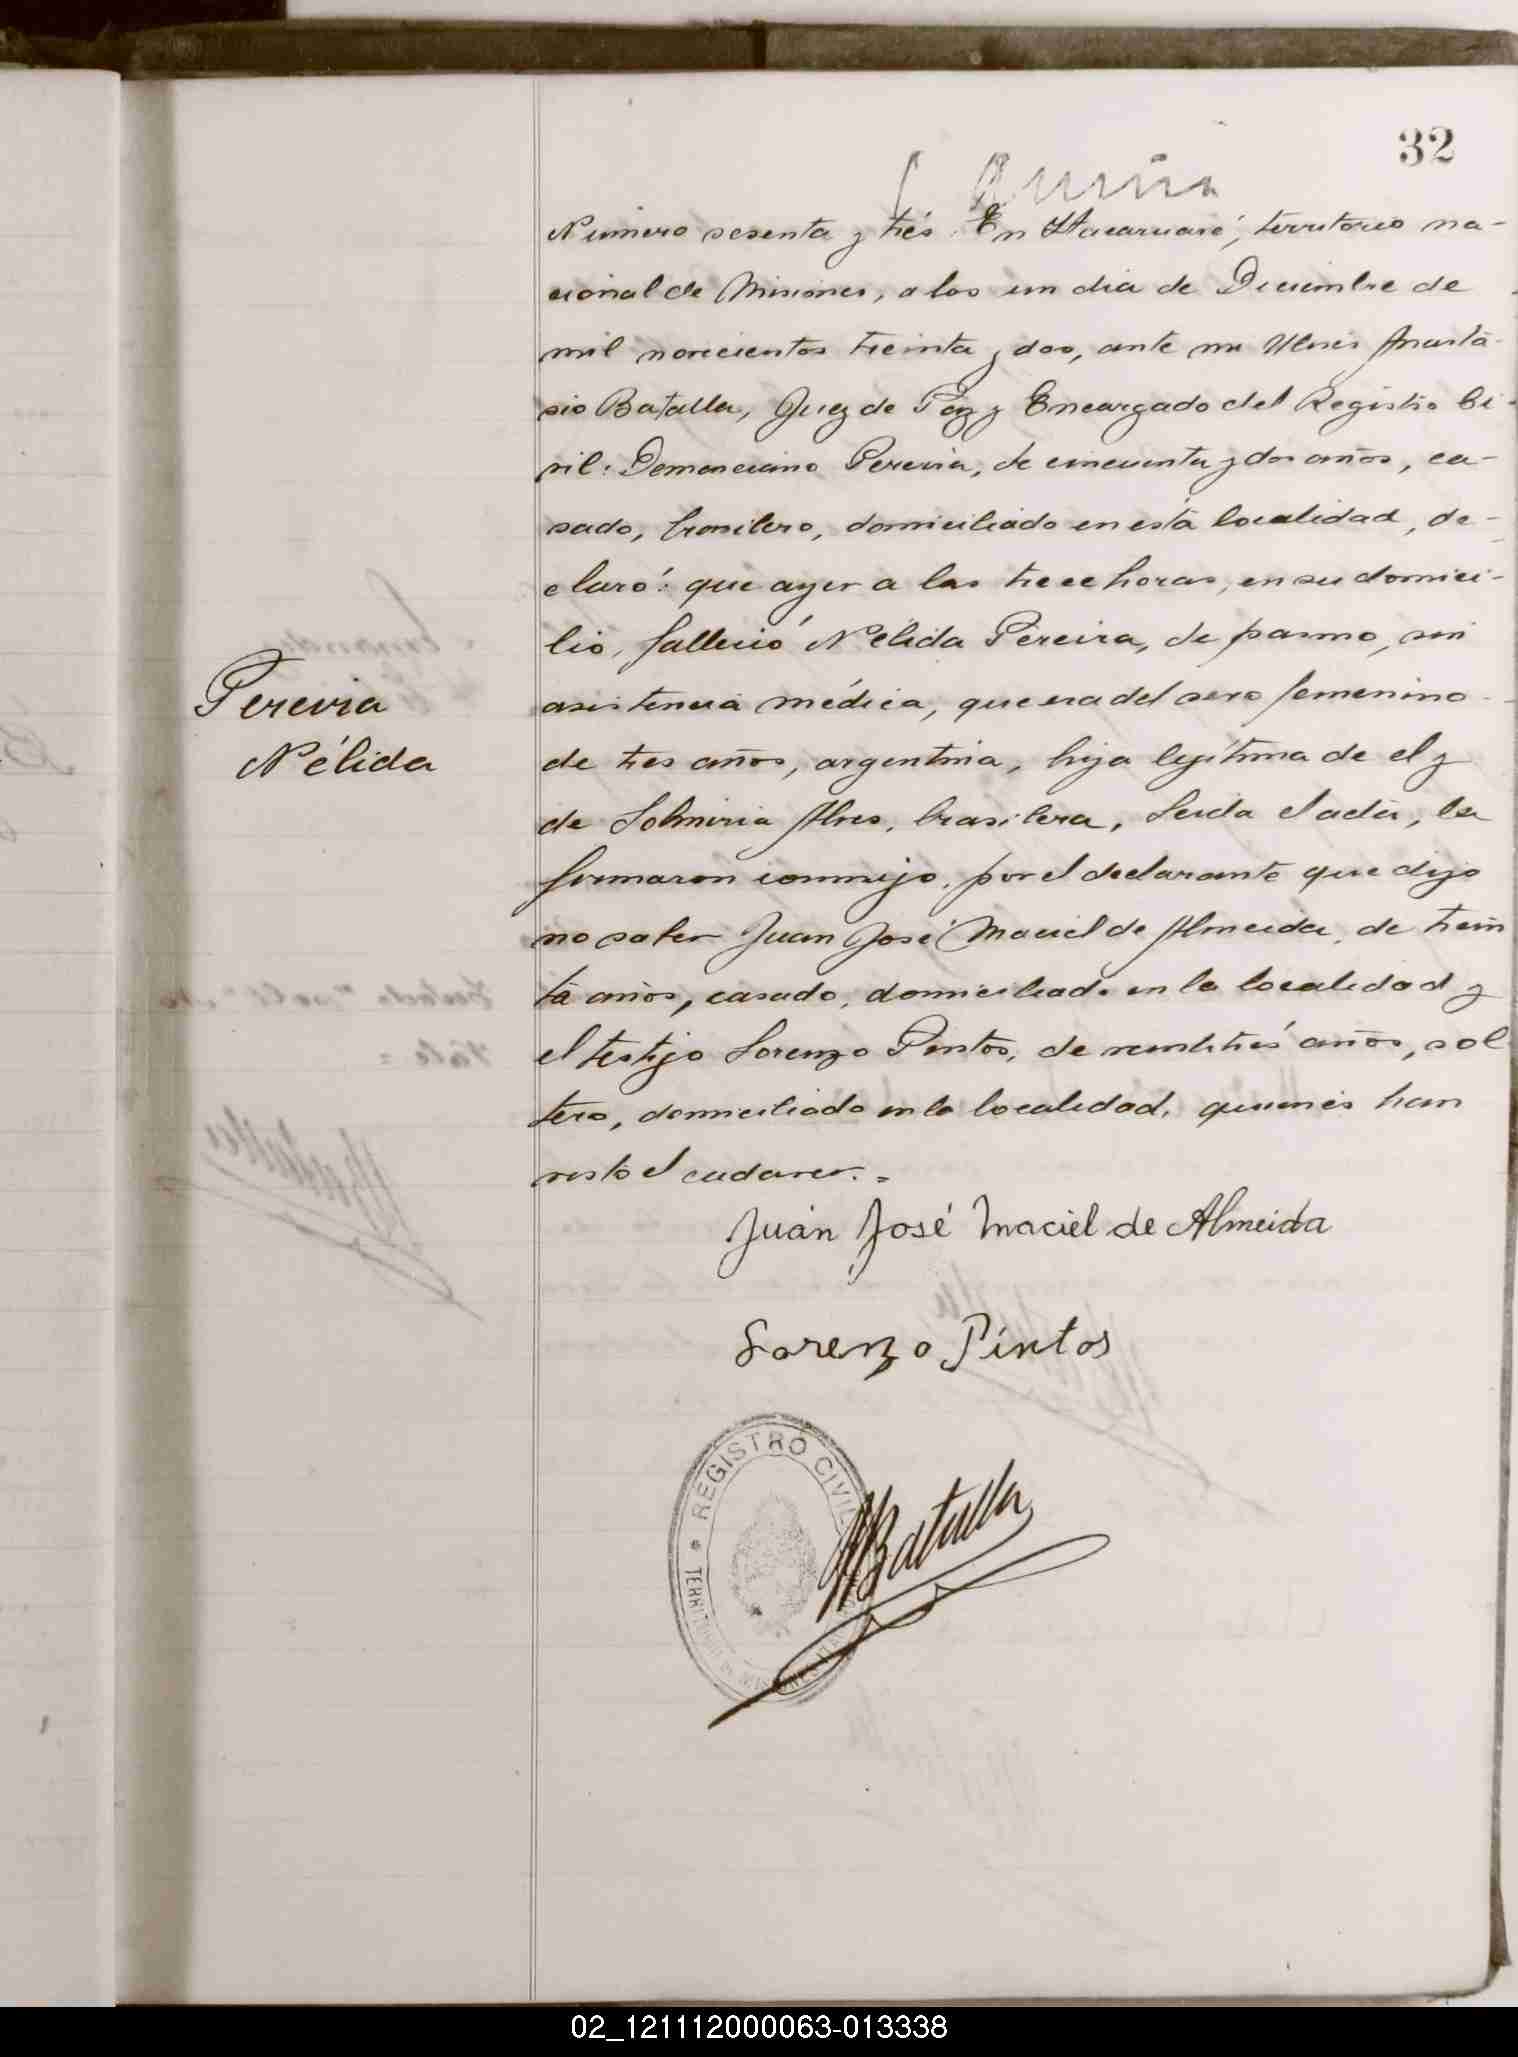 32
Número sesenta y trés. En Itacaruaré, territorio na-
cional de Misiones, a los un dia de Diciembre de
mil novecientos treinta y dos, ante mi Anasta-
sio Batalla, Juez de Paz y Encargado del Registro Ci-
vil: Pereira, de cincuenta y dos años, ca-
sado, brasilero, domiciliado en está localidad, de-
claró: que ayer a las trece horas, en su domici-
lio, falleció Nélida Pereira, de pasmo, sin
asistencia médica, que era del sexo femenino
de tres años, argentina, hija legítima de el y
de Alves, brasilera, Leida el acta, la
firmaron conmigo, por el declarante que dijo
no saber Juan José Maciel de Almeida, de trein
ta años, casado, domiciliado en la localidad y
el testigo Lorenzo Pintos, de veintitrés años, sol
tero, domiciliado en la localidad, quienes han
visto el cadaver. =
Pereira
Nélida
Juan José Maciel de Almeida
Lorenzo Pintos
REGISTRO CIVIL
TERRITORIO DE MISIONES
Batalla
02_121112000063-013338